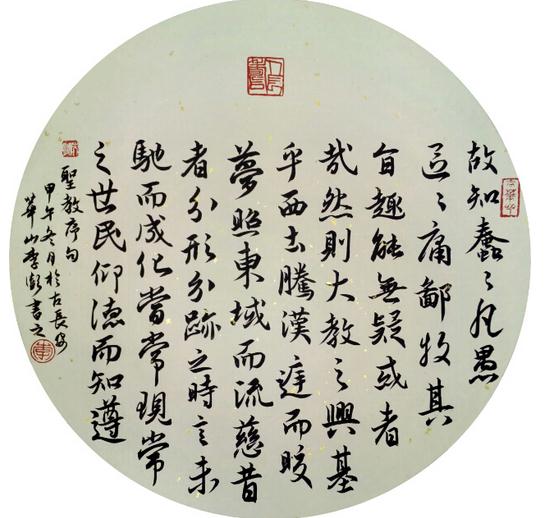 故知蠢〻凡愚
區〻庸鄙投其
旨趣能無疑或者
哉然則大教之興基
乎西土騰漢庭而皎
夢照東域而流慈昔
者分形分跡之時言未
馳而成化當常現常
之世民仰德而知遵
聖教序句
甲午冬月於古長安
華山李書之